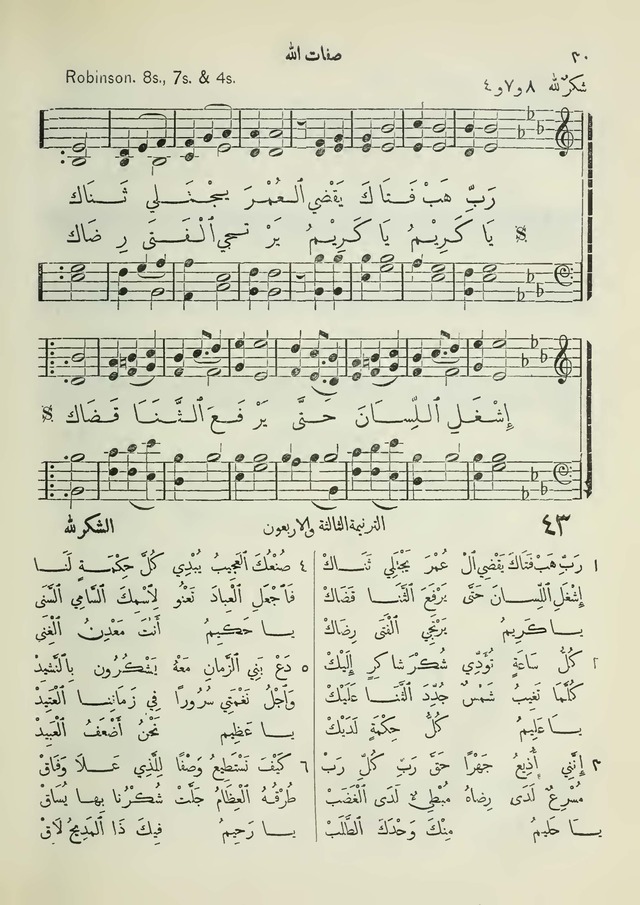 ٣٠ صفات الله
شكرٌ لله ٨ و٧ و٤ Robinson. 8s., 7s. & 4s.
رَبِّ هَبْ فَتَاكَ يَقْضِي الْعُمْرَ يَجْتَلِي ثَنَاكَ
يَا كَرِيمُ يَا كَرِيمُ يَرْتَجِي الْفَتَى رِضَاكَ
إِشْغَلِ اللِّسَانَ حَتَّى يَرْفَعَ الثَّنَا قَضَاكَ
٤٣ الترنيمة الثالثة والاربعون الشكر لله
١ رَبِّ هَبْ فَتَاكَ يَقْضِي الْ عُمْرَ يَجْتَلِي ثَنَاكْ
إِشْغَلِ اللِّسَانَ حَتَّى يَرْفَعَ الثَّنَا قَضَاكْ
يَا كَرِيمُ يَرْتَجِي الْفَتَى رِضَاكْ
٢ كُلَّ سَاعَةٍ تُؤَدِّي شُكْرَ شَاكِرٍ إِلَيْكْ
كُلَّمَا تَغِيبُ شَمْسٌ جُدِّدَ الثَّنَا عَلَيْكْ
يَا عَلِيمُ كُلُّ حِكْمَةٍ لَدَيْكْ
٣ إِنَّنِي أُذِيعُ جَهْرًا حَقَّ رَبِّ كُلِّ رَبْ
مُسْرِعٌ لَدَى رِضَاهُ مُبْطِئٌ لَدَى الْغَضَبْ
يَا حَلِيمُ مِنْكَ وَحْدَكَ الطَّلَبْ
٤ صُنْعُكَ الْعَجِيبُ يُبْدِي كُلَّ حِكْمَةٍ لَنَا
فَاجْعَلِ الْعِبَادَ تَعْنُو لِاسْمِكَ السَّامِي السَّنَى
يَا حَكِيمُ أَنْتَ مَعْدِنُ الْغِنَى
٥ دَعْ بَنِي الزَّمَانِ مَعْهُ يَشْكُرُونَ بِالنَّشِيدْ
وَاجْلُ نَغْمَتِي سُرُورًا فِي زَمَانِنَا الْعَتِيدْ
يَا عَظِيمُ نَحْنُ أَضْعَفُ الْعَبِيدْ
٦ كَيْفَ نَسْتَطِيعُ وَصْفًا لِلَّذِي عَلَا وَفَاقْ
طُرْقُهُ الْعِظَامُ جَلَّتْ شُكْرُنَا بِهَا يُسَاقْ
يَا رَحِيمُ فِيكَ ذَا الْمَدِيحُ لَاقْ